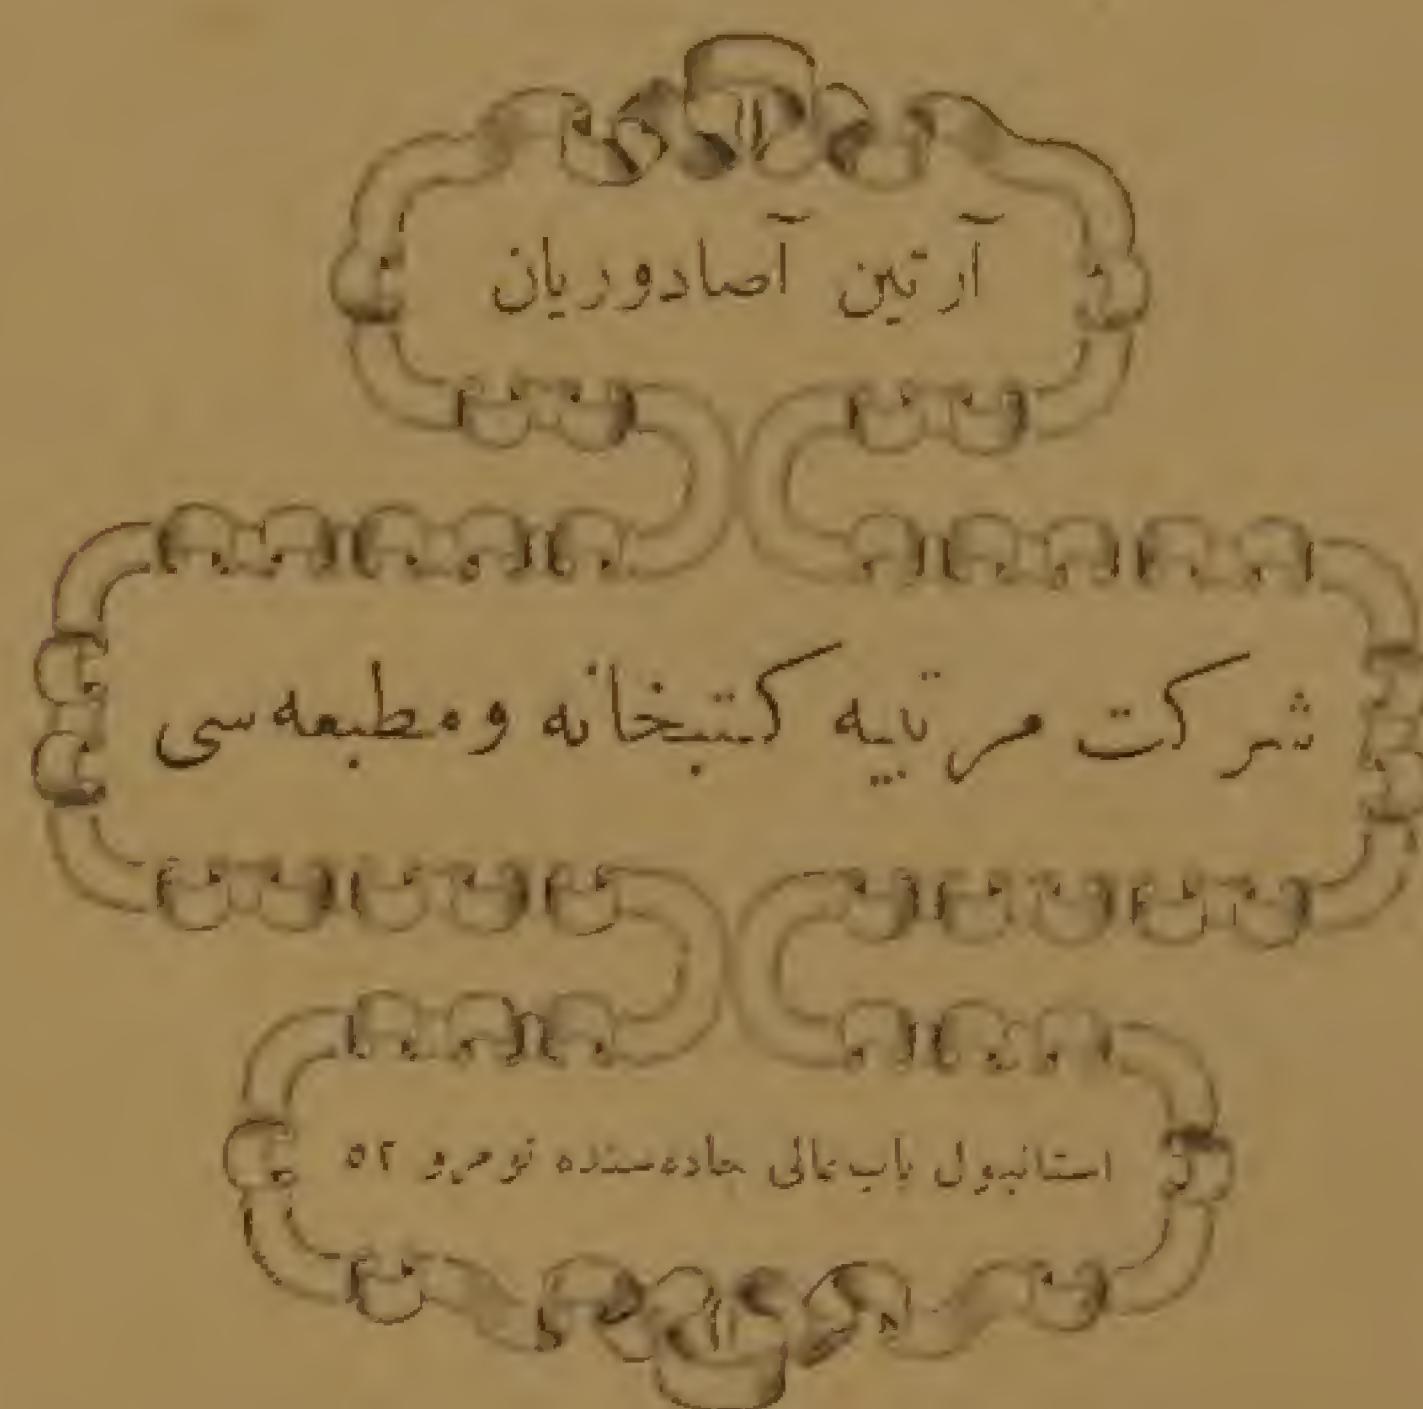 آرتین آصادوریان
شرکت مرتبیه کتبخانه ومطبعه‌سی
استانبول باب عالی جاده‌سنده نومرو ٥٢